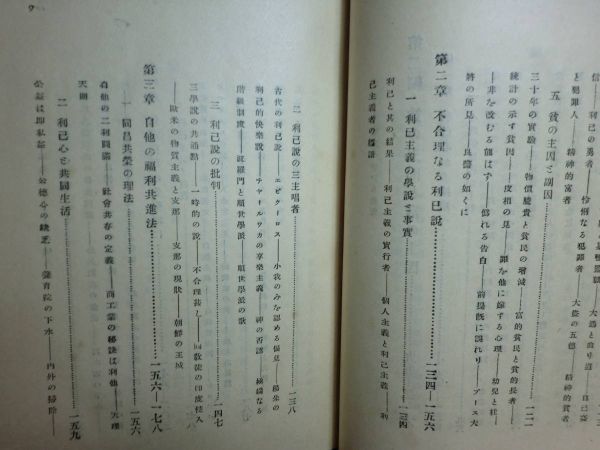 信――利己の勇者――怜悧なる犯罪者――大盜の五德――精神的貧者
と犯罪人――精神的富者
五 貧の主因と副因…………一二一
三十年の實驗――物價騰貴と貧民の增減――富的貧民と貧的長者――
統計の示す貧因――皮相の見――罪を他に嫁する心理――幼兒と柱――
非を改むる能はず――僞れる告白――前提既に誤れり――ブース大
將の所見――良藥の如くに
第二章 不合理なる利己說…………一三四―一五六
一 利己主義の學說と事實…………一三四
利己と其の結果――利己主義の實行者――個人主義と利己主義――利
己主義者の
二 利己說の三主唱者…………一三八
古代の利己說――エピクーロス――小我のみを認める偏見――楊朱の
利己的快樂說――チャールワカの享樂主義――神の否認――
階級制度――波羅門と順世學派――順世學派の歌
三 利己說の批判…………一四七
三學說の共通點――一時的の說――不合理――回敎徒の印度侵入
――歐米の物質主義と支那――支那の現狀――朝鮮の王城
第三章 自他の福利共進法…………一五六―一七八
一 同昌共榮の理法…………一五六
自他の二利圓滿――社會共存の定義――商工業の秘訣は利他――天理
天則
二 利己心と共同生活…………一五九
公益は卽私益――公德心の缺乏――養育院の下水――內外の掃除――
9